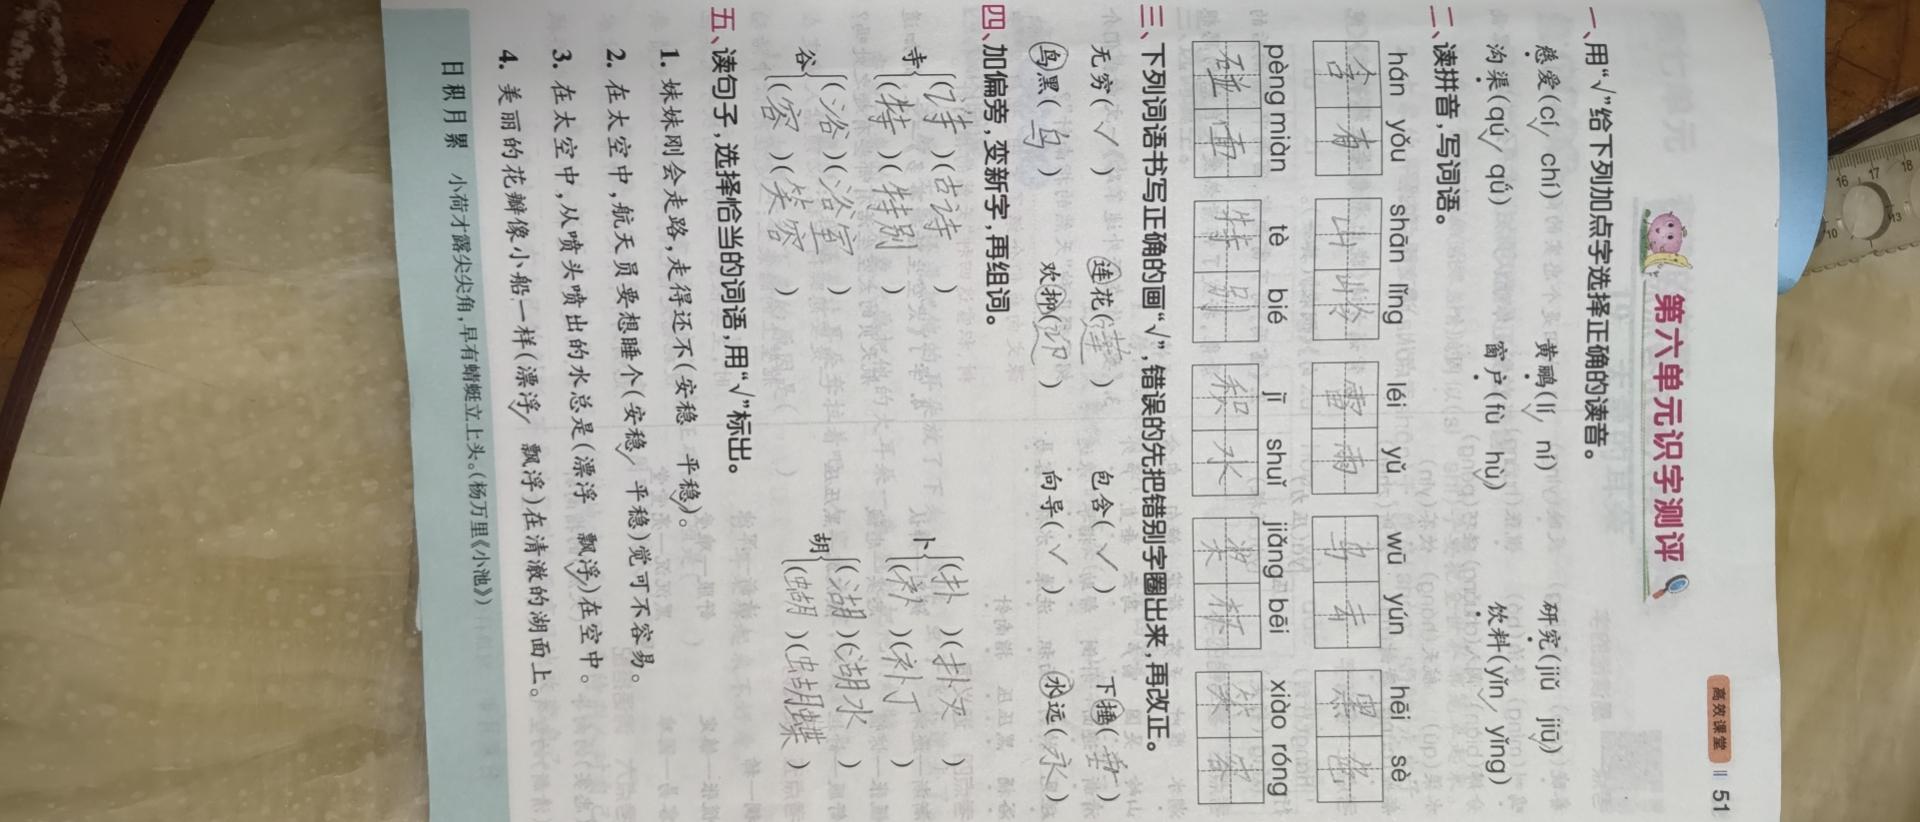 高效课堂 51
第六单元识字测评
一、用“√”给下列加点字选择正确的读音。
慈爱(cí√ chí) 黄鹂(lí√ ní) 研究(jiǔ jiū√)
沟渠(qú√ qǘ) 窗户(fù hù√) 饮料(yǐn√ yǐng)
二、读拼音,写词语。
hán yǒu shān lǐng léi yǔ wū yún hēi sè
含有 山岭 雷雨 乌云 黑色
pèng miàn tè bié jī shuǐ jiǎng bēi xiào róng
碰面 特别 积水 奖杯 笑容
三、下列词语书写正确的画“√”,错误的先把错别字圈出来,再改正。
无穷(√) 连花(莲) 包含(√) 下捶(垂)
鸟黑(乌) 欢抑(迎) 向导(√) 水远(永)
四、加偏旁,变新字,再组词。
寺{(诗)(古诗) 卜{(扑)(扑灭)
(特)(特别) (补)(补丁)
谷{(浴)(浴室) 胡{(湖)(湖水)
(容)(笑容) (蝴)(蝴蝶)
五、读句子,选择恰当的词语,用“√”标出。
1. 妹妹刚会走路,走得还不(安稳 平稳√)。
2. 在太空中,航天员要想睡个(安稳√ 平稳)觉可不容易。
3. 在太空中,从喷头喷出的水总是(漂浮 飘浮√)在空中。
4. 美丽的花瓣像小船一样(漂浮√ 飘浮)在清澈的湖面上。
日积月累 小荷才露尖尖角,早有蜻蜓立上头。(杨万里《小池》)